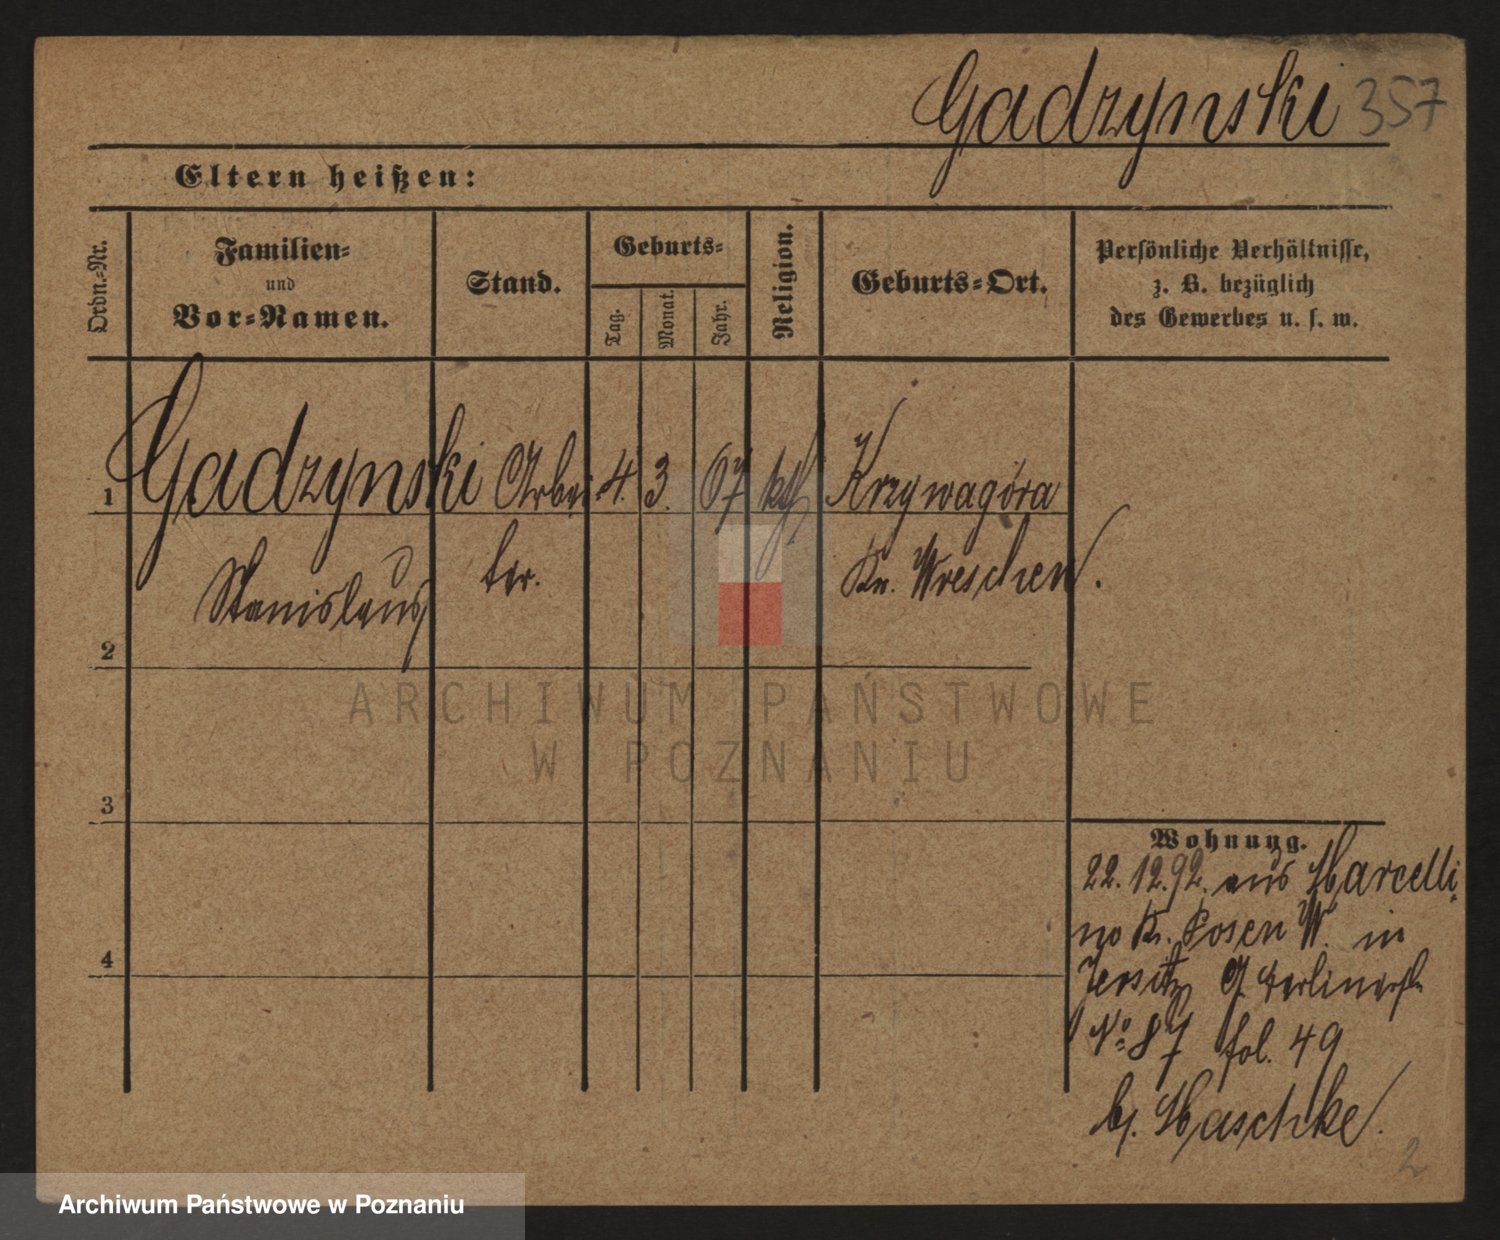 Gadzynski 357
Eltern heißen:
Ordn.-Nr.
Familien-
und
Vor-Namen.
Stand.
Geburts-
Tag.
Monat.
Jahr.
Religion.
Geburts-Ort.
Persönliche Verhältnisse,
z. B. bezüglich
des Gewerbes u. s. w.
1 Gadzynski Arbei- 4. 3. 67 kth Krzywagóra
Stanislaus ter. Kr. Wreschen.
2
3
4
ARCHIWUM PAŃSTWOWE
W POZNANIU
Wohnung.
22.12.92. aus Marcelli-
no Kr. Posen W. in
Jersitz Berlinerstr
No 87 fol. 49
bj. Haschke.
2
Archiwum Państwowe w Poznaniu